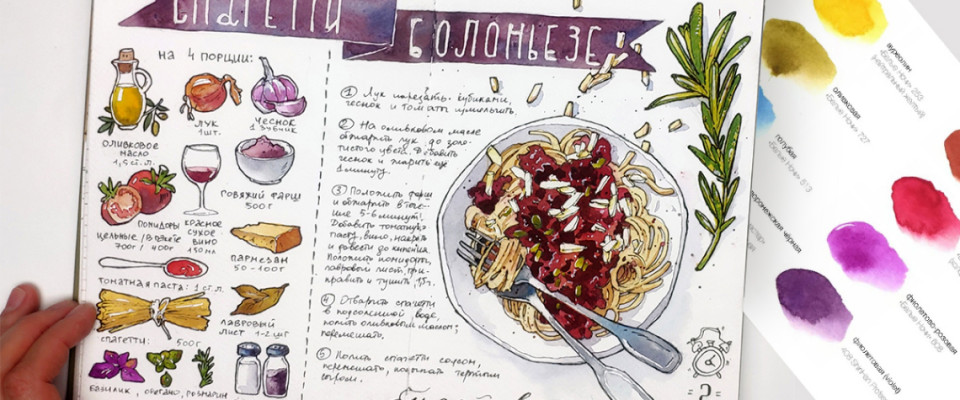 СПАГЕТТИ
БОЛОНЬЕЗЕ
НА 4 ПОРЦИИ:
ОЛИВКОВОЕ
МАСЛО
1,5 ст.л.
ЛУК
1 шт.
ЧЕСНОК
1 ЗУБЧИК
ГОВЯЖИЙ ФАРШ
500 г
ПОМИДОРЫ
ЦЕЛЬНЫЕ
700 г / 400 г
КРАСНОЕ
СУХОЕ
ВИНО
150 мл
ПАРМЕЗАН
50 - 100 г
ТОМАТНАЯ ПАСТА: 1 ст.л.
СПАГЕТТИ: 500 г
ЛАВРОВЫЙ
ЛИСТ 1-2 шт
БАЗИЛИК, ОРЕГАНО, РОЗМАРИН
① Лук нарезать кубиками,
чеснок и томаты измельчить.
② На оливковом масле
обжарить лук до золо-
тистого цвета. Добавить
чеснок и жарить еще
1 минуту.
③ Положить фарш
и обжарить в тече-
ние 5-6 минут.
Добавить томатную
пасту, вино, накрыть
и довести до кипения.
Положить помидоры,
лавровый лист, при-
править и тушить
④ Отварить спагетти
в подсоленной воде,
полить оливковым маслом,
перемешать.
⑤ Полить спагетти соусом,
перемешать, посыпать тертым
сыром.
оливковая
«Белые Ночи» 727
голубая
«Белые Ночи» 513
фиолетово-розовая
«Белые Ночи» 608
фиолетовая (violet)